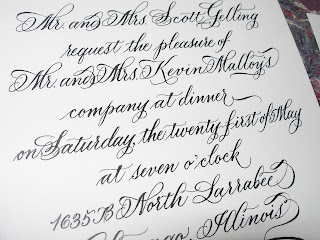 Mr. and Mrs. Scott Gelting
request the pleasure of
Mr. and Mrs. Kevin Malloy's
company at dinner
on Saturday, the twenty first of May
at seven o'clock
1635 B North Larrabee
Chicago, Illinois